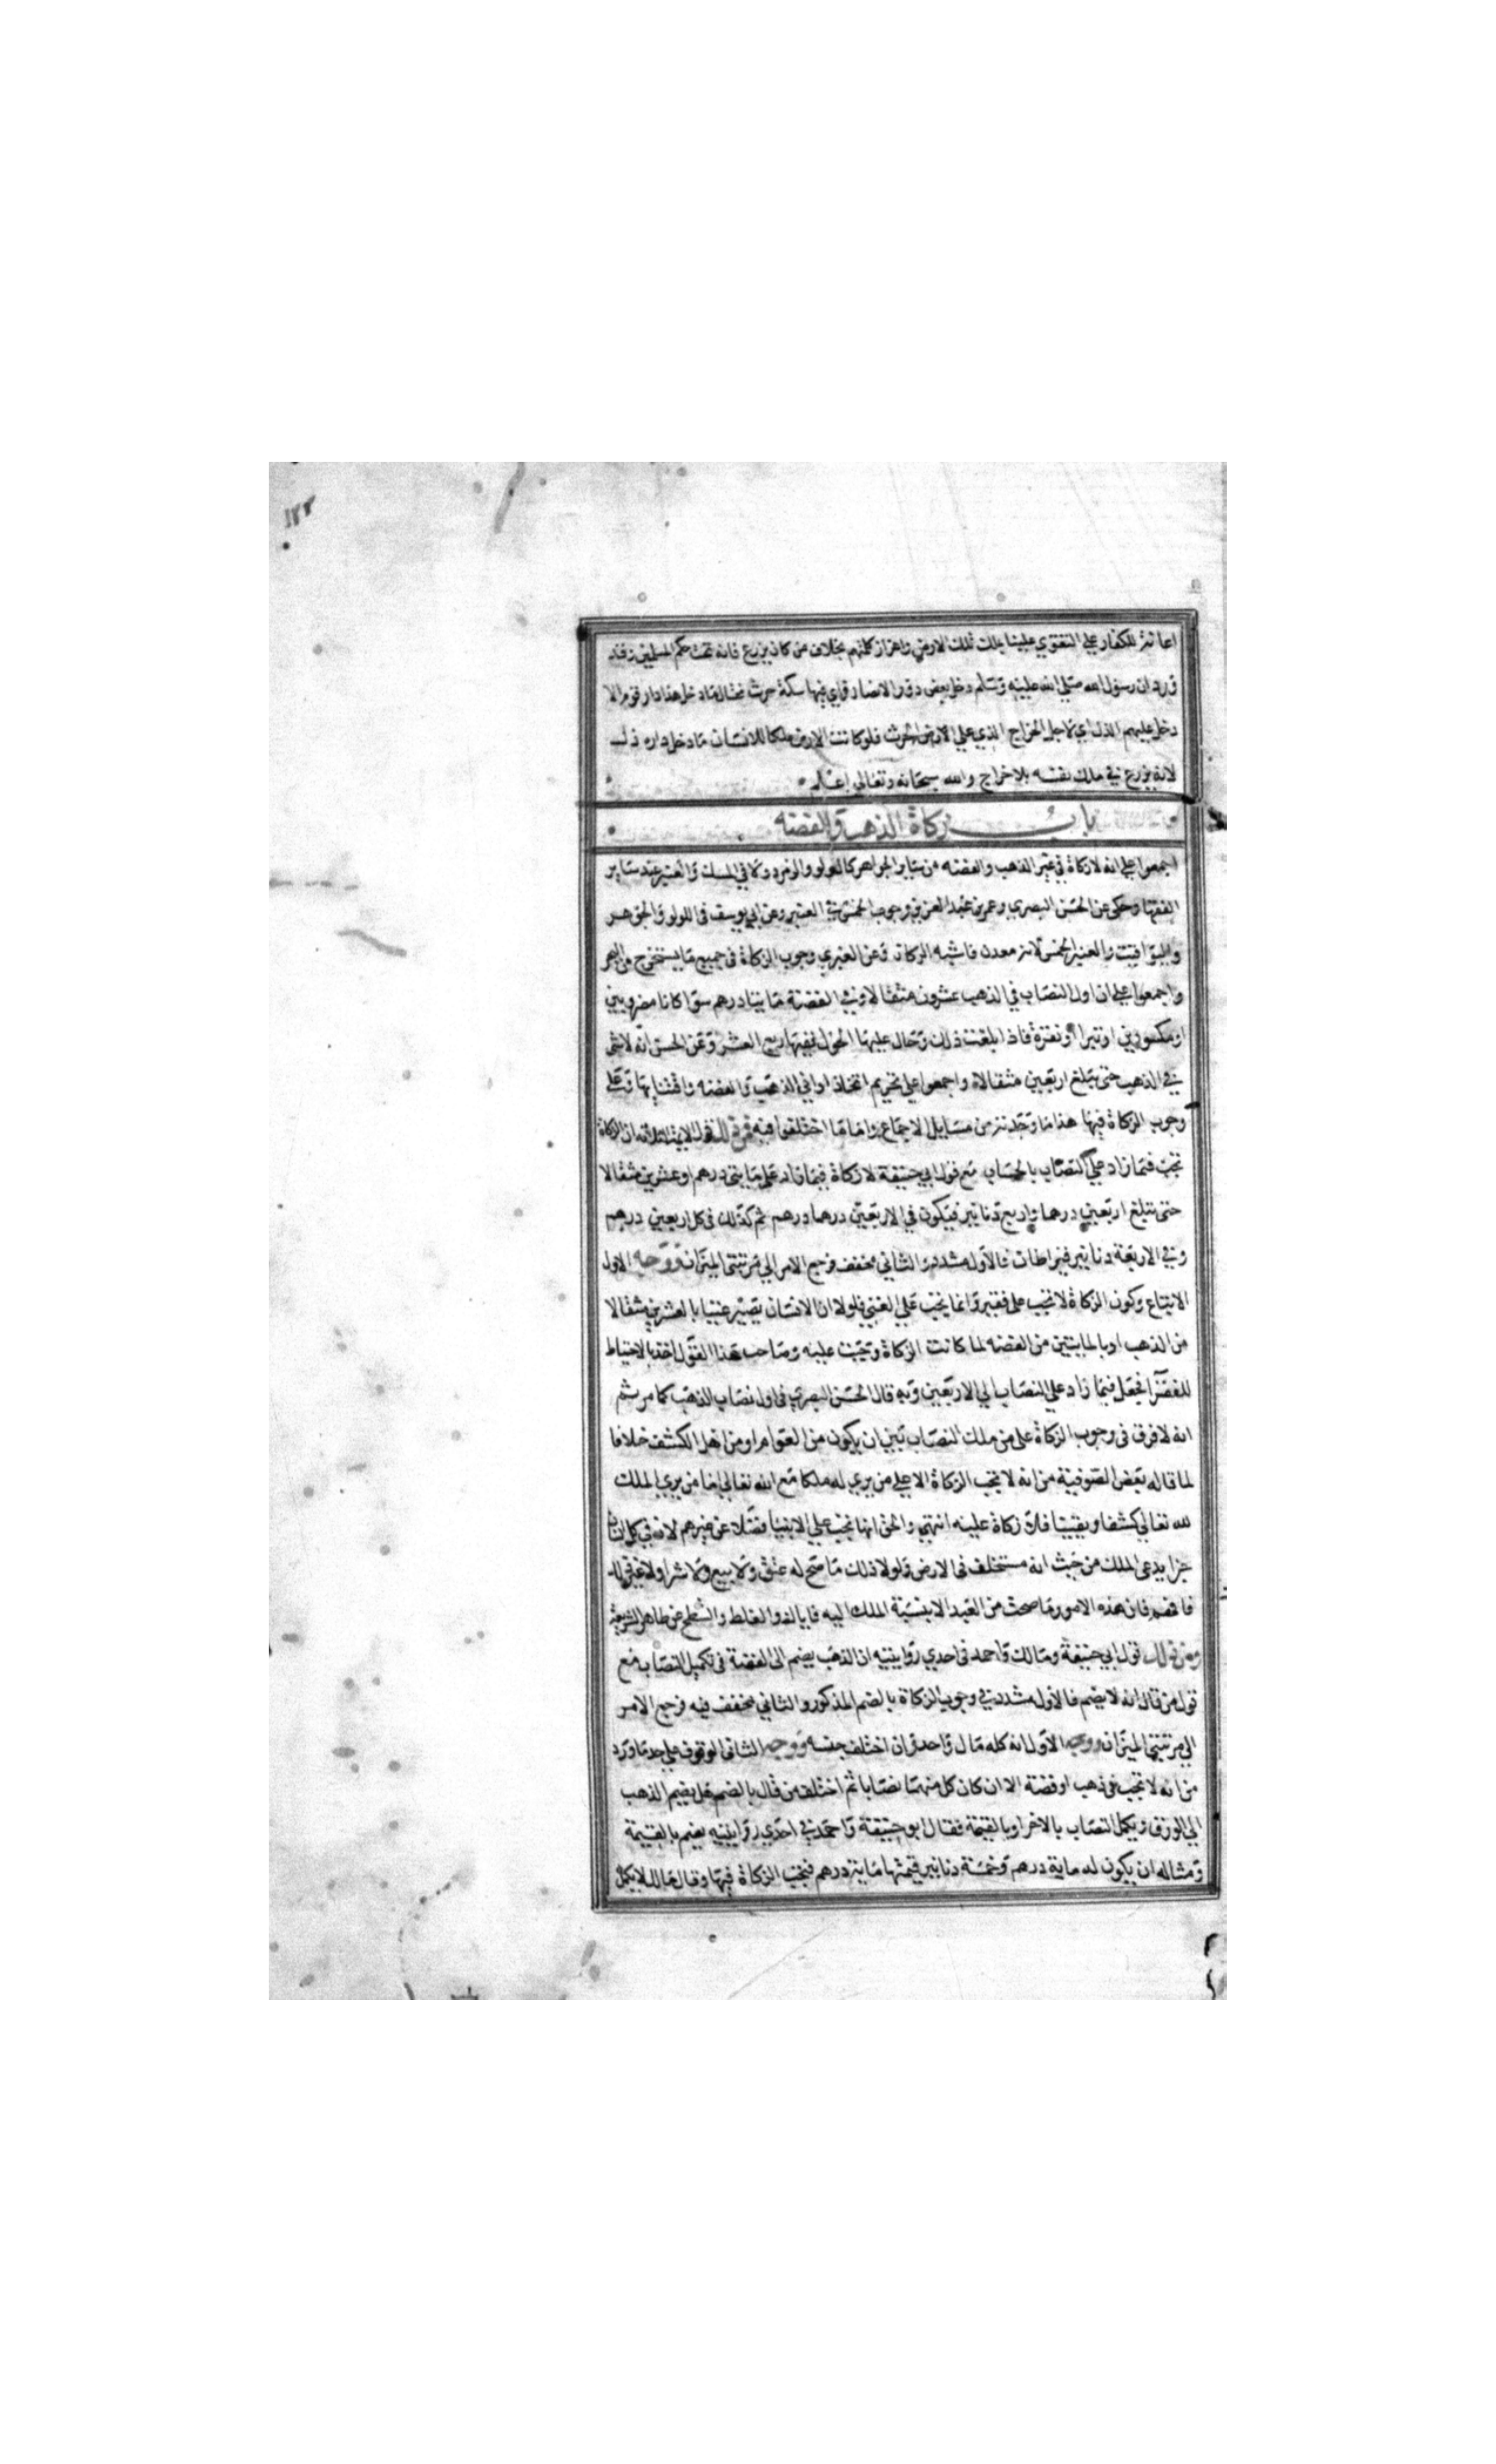 ١٢٢
اعانة للكفار على التقوي علينا بملك تلك الارض واهراز كلمتهم بخلاف من كان يزرع فانه تحت حكم المسلمين وقد
ورد ان رسول الله صلى الله عليه وسلم دخل بعض دور الانصار فراي فيها سكة حرث فقال ما دخل هذا دار قوم الا
دخل عليهم الذل اي لاجل الخراج الذي على الارض الحرث فلو كانت الارض ملكا للانسان ما دخل داره ذل
لانه يزرع في ملك نفسه بلا خراج والله سبحانه وتعالى اعلم
باب زكاة الذهب والفضه
اجمعوا على انه لا زكاة في غير الذهب والفضه من ساير الجواهر كاللولو والزمرد ولا في المسك والعنبر عند ساير
الفقها وحكى عن الحسن البصري وعمر بن عبد العزيز وجوب الخمس في العنبر وعن ابي يوسف في اللولو والجوهر
واليواقيت والعنبر الخمس لانه معدن فاشبه الركاز وعن العنبري وجوب الزكاة في جميع ما يستخرج من البحر
واجمعوا على ان اول النصاب في الذهب عشرون مثقالا وفي الفضة مايتا درهم سوا كانا مضروبين
او مكسورين او تبرا او نقرة فاذا بلغت ذلك وحال عليها الحول ففيها ربع العشر وعن الحسن انه لا شي
في الذهب حتى تبلغ اربعين مثقالا واجمعوا على تحريم اتخاذ اواني الذهب والفضه واقتنايها وعلى
وجوب الزكاة فيها هذا ما وجدته من مسايل الاجماع واما ما اختلفوا فيه فمن ذلك قول الايمة الثلاثه ان الزكاة
تجب فيما زاد على النصاب بالحساب مع قول ابي حنيفة لا زكاة فيما زاد على مايتي درهم وعشرين مثقالا
حتى تبلغ اربعين درهما واربع دنانير فيكون في الاربعين درهما درهم ثم كذلك في كل اربعين درهم
وفي الاربعة دنانير قيراطان فالاول مشدد والثاني مخفف فرجع الامر الى مرتبتي الميزان ووجه الاول
الاتباع وكون الزكاة لا تجب على فقير وانما تجب على الغني فلولا ان الانسان يصير غنيا بالعشرين مثقالا
من الذهب او بالمايتين من الفضه لما كانت الزكاة وجبت عليه وصاحب هذا القول اخذ بالاحتياط
للفقرا فجعل فيما زاد على النصاب الى الاربعين وبه قال الحسن البصري في اول نصاب الذهب كما مر ثم
انه لا فرق في وجوب الزكاة على من ملك النصاب بين ان يكون من العوام او من اهل الكشف خلافا
لما قاله بعض الصوفية من انه لا تجب الزكاة الا على من يرى له ملكا مع الله تعالى اما من يرى الملك
لله تعالى كشفا ويقينا فلا زكاة عليه انتهى والحق انها تجب على الانبيا فضلا عن غيرهم لانه في كل انسان
جزا يدعى الملك من حيث انه مستخلف في الارض ولولا ذلك ما صح له عتق ولا بيع ولا شرا ولا غير ذلك
فافهم فان هذه الامور ما صحت من العبد الا بنسبة الملك اليه فاياك والغلط والشطح عن ظاهر الشريعة
ومن ذلك قول ابي حنيفة ومالك واحمد في احدي روايتيه ان الذهب يضم الى الفضة في تكميل النصاب مع
قول من قال انه لا يضم فالاول مشدد في وجوب الزكاة بالضم المذكور والثاني مخفف فيه فرجع الامر
الى مرتبتي الميزان ووجه الاول انه كله مال واحد وان اختلف جنسه ووجه الثاني الوقوف على حد ما ورد
من انه لا تجب في ذهب او فضة الا ان كان كل منهما نصابا ثم اختلف من قال بالضم هل يضم الذهب
الى الورق ويكمل النصاب بالاخر او بالقيمة فقال ابو حنيفة واحمد في احدي روايتيه يضم بالقيمة
ومثاله ان يكون له ماية درهم وخمسة دنانير قيمتها ماية درهم فتجب الزكاة فيها وقال مالك يكمل